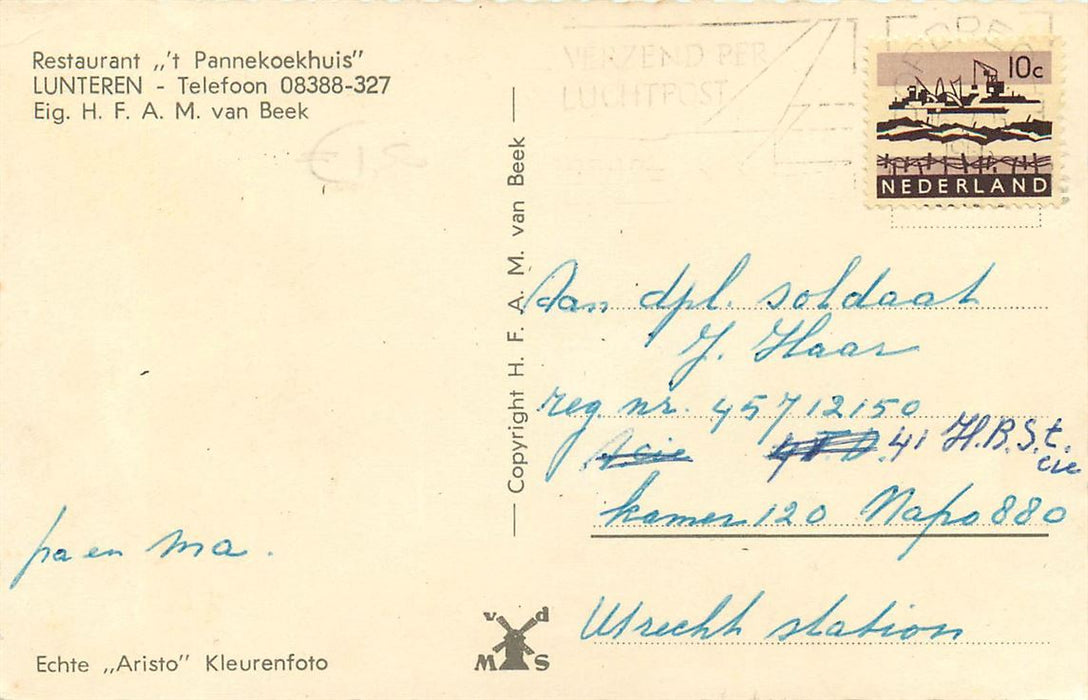 Restaurant „'t Pannekoekhuis"
LUNTEREN - Telefoon 08388-327
Eig. H. F. A. M. van Beek
€ 1,50
VERZEND PER
LUCHTPOST
10c
NEDERLAND
Copyright H. F. A. M. van Beek
Aan dpl. soldaat
J. Haar
reg. nr. 45712150
41 H.B.St.
cie
kamer 120 Napo 880
Utrecht station
pa en ma.
v d
M S
Echte „Aristo" Kleurenfoto